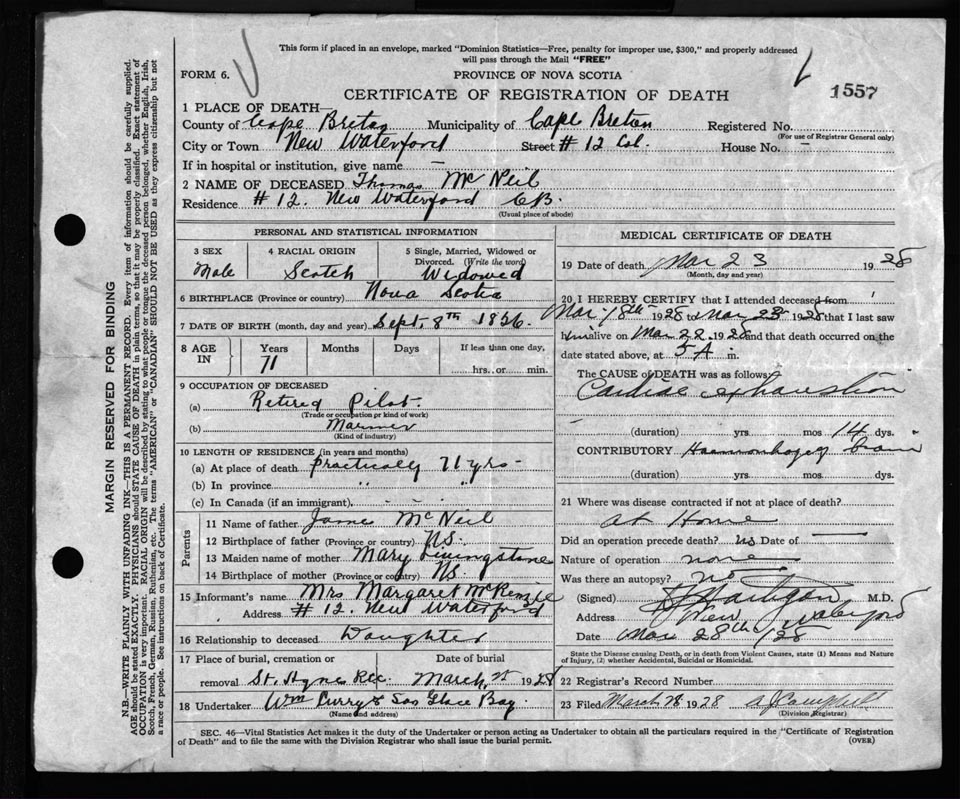 This form if placed in an envelope, marked "Dominion Statistics—Free, penalty for improper use, $300," and properly addressed
will pass through the Mail "FREE"
FORM 6.
PROVINCE OF NOVA SCOTIA
CERTIFICATE OF REGISTRATION OF DEATH
1557
1 PLACE OF DEATH—
County of Cape Breton Municipality of Cape Breton Registered No.
(For use of Registrar General only)
City or Town New Waterford Street # 12 Col. House No. —
If in hospital or institution, give name —
2 NAME OF DECEASED Thomas McNeil
Residence # 12. New Waterford C.B.
(Usual place of abode)
PERSONAL AND STATISTICAL INFORMATION
3 SEX 4 RACIAL ORIGIN 5 Single, Married, Widowed or
Divorced. (Write the word)
Male Scotch Widowed
6 BIRTHPLACE (Province or country) Nova Scotia
7 DATE OF BIRTH (month, day and year) Sept. 8th 1856.
8 AGE IN Years Months Days If less than one day,
71 hrs. or min.
9 OCCUPATION OF DECEASED
(a) Retired Pilot.
(Trade or occupation or kind of work)
(b) Mariner
(Kind of industry)
10 LENGTH OF RESIDENCE (in years and months)
(a) At place of death practically 71 yrs-
(b) In province " "
(c) In Canada (if an immigrant)
Parents
11 Name of father James McNeil
12 Birthplace of father (Province or country) N.S.
13 Maiden name of mother Mary Livingstone
14 Birthplace of mother (Province or country) N.S.
15 Informant's name Mrs Margaret McKenzie
Address # 12. New Waterford
16 Relationship to deceased Daughter
17 Place of burial, cremation or Date of burial
removal St. Agnes Rec. March 1928
18 Undertaker Wm Curry & Son Glace Bay.
(Name and address)
MEDICAL CERTIFICATE OF DEATH
19 Date of death Mar 23 1928
(Month, day and year)
20 I HEREBY CERTIFY that I attended deceased from
Mar. 18th 1928 to Mar 23 1928 that I last saw
him alive on Mar 22 1928 and that death occurred on the
date stated above, at 5 A. m.
The CAUSE of DEATH was as follows:
Cardiac exhaustion
(duration) yrs. mos. 14 dys.
CONTRIBUTORY Haemorrhage Brain
(duration) yrs. mos. dys.
21 Where was disease contracted if not at place of death?
at Home
Did an operation precede death? no Date of —
Nature of operation none
Was there an autopsy? no
(Signed) M.D.
Address New Waterford
Date Mar 28th /28
State the Disease causing Death, or in death from Violent Causes, state (1) Means and Nature
of Injury, (2) whether Accidental, Suicidal or Homicidal.
22 Registrar's Record Number
23 Filed March 28 1928 A J Campbell
(Division Registrar)
SEC. 46—Vital Statistics Act makes it the duty of the Undertaker or person acting as Undertaker to obtain all the particulars required in the "Certificate of Registration
of Death" and to file the same with the Division Registrar who shall issue the burial permit.
(OVER)
MARGIN RESERVED FOR BINDING
N.B.—WRITE PLAINLY WITH UNFADING INK—THIS IS A PERMANENT RECORD. Every item of information should be carefully supplied.
AGE should be stated EXACTLY. PHYSICIANS should STATE CAUSE OF DEATH in plain terms, so that it may be properly classified. Exact statement of
OCCUPATION is very important. RACIAL ORIGIN will be described by stating to what people or tongue the deceased person belonged, whether English, Irish,
Scotch, French, German, Russian, Ruthenian, etc. The terms "AMERICAN" or "CANADIAN" SHOULD NOT BE USED as they express citizenship but not
a race or people. See instructions on back of Certificate.